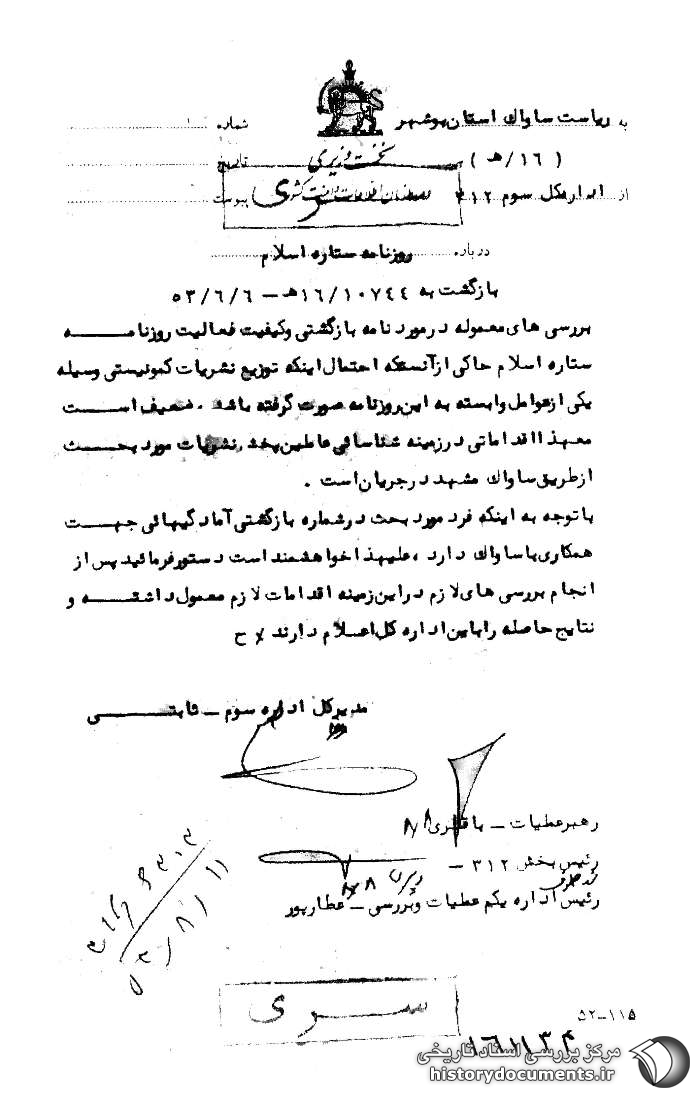 به ریاست ساواک استان بوشهر
شماره
( ۱۶/هـ )
نخست وزیری
تاریخ
از اداره کل سوم ۳۱۲
سازمان اطلاعات و امنیت کشور
پیوست
سری
درباره روزنامه ستاره اسلام
بازگشت به ۱۶/۱۰۷۴۴هـ – ۵۳/۶/۶
بررسی های معموله در مورد نامه بازگشتی وکیفیت فعالیت روزنامه
ستاره اسلام حاکی از آنستکه احتمال اینکه توزیع نشریات کمونیستی وسیله
یکی از عوامل وابسته به این روزنامه صورت گرفته باشد . ضعیف است
معهذا اقداماتی در زمینه شناسائی عاملین پخش نشریات مورد بحث
از طریق ساواک مشهد در جریان است .
با توجه به اینکه فرد مورد بحث در شماره بازگشتی آمادگیهائی جهت
همکاری با ساواک دارد ، علیهذا خواهشمند است دستور فرمائید پس از
انجام بررسی های لازم در این زمینه اقدامات لازم معمول داشته و
نتایج حاصله را باین اداره کل اعلام دارند ح
مدیر کل اداره سوم – ثابتی
رهبر عملیات – باقری ۸/۸
رئیس بخش ۳۱۲ –
رئیس اداره یکم عملیات وبررسی – عطارپور
۵۳/۸/۱۱
سری
۵۲–۱۱۵
۱۶۱۱۳۴
مرکز بررسی اسناد تاریخی
historydocuments.ir